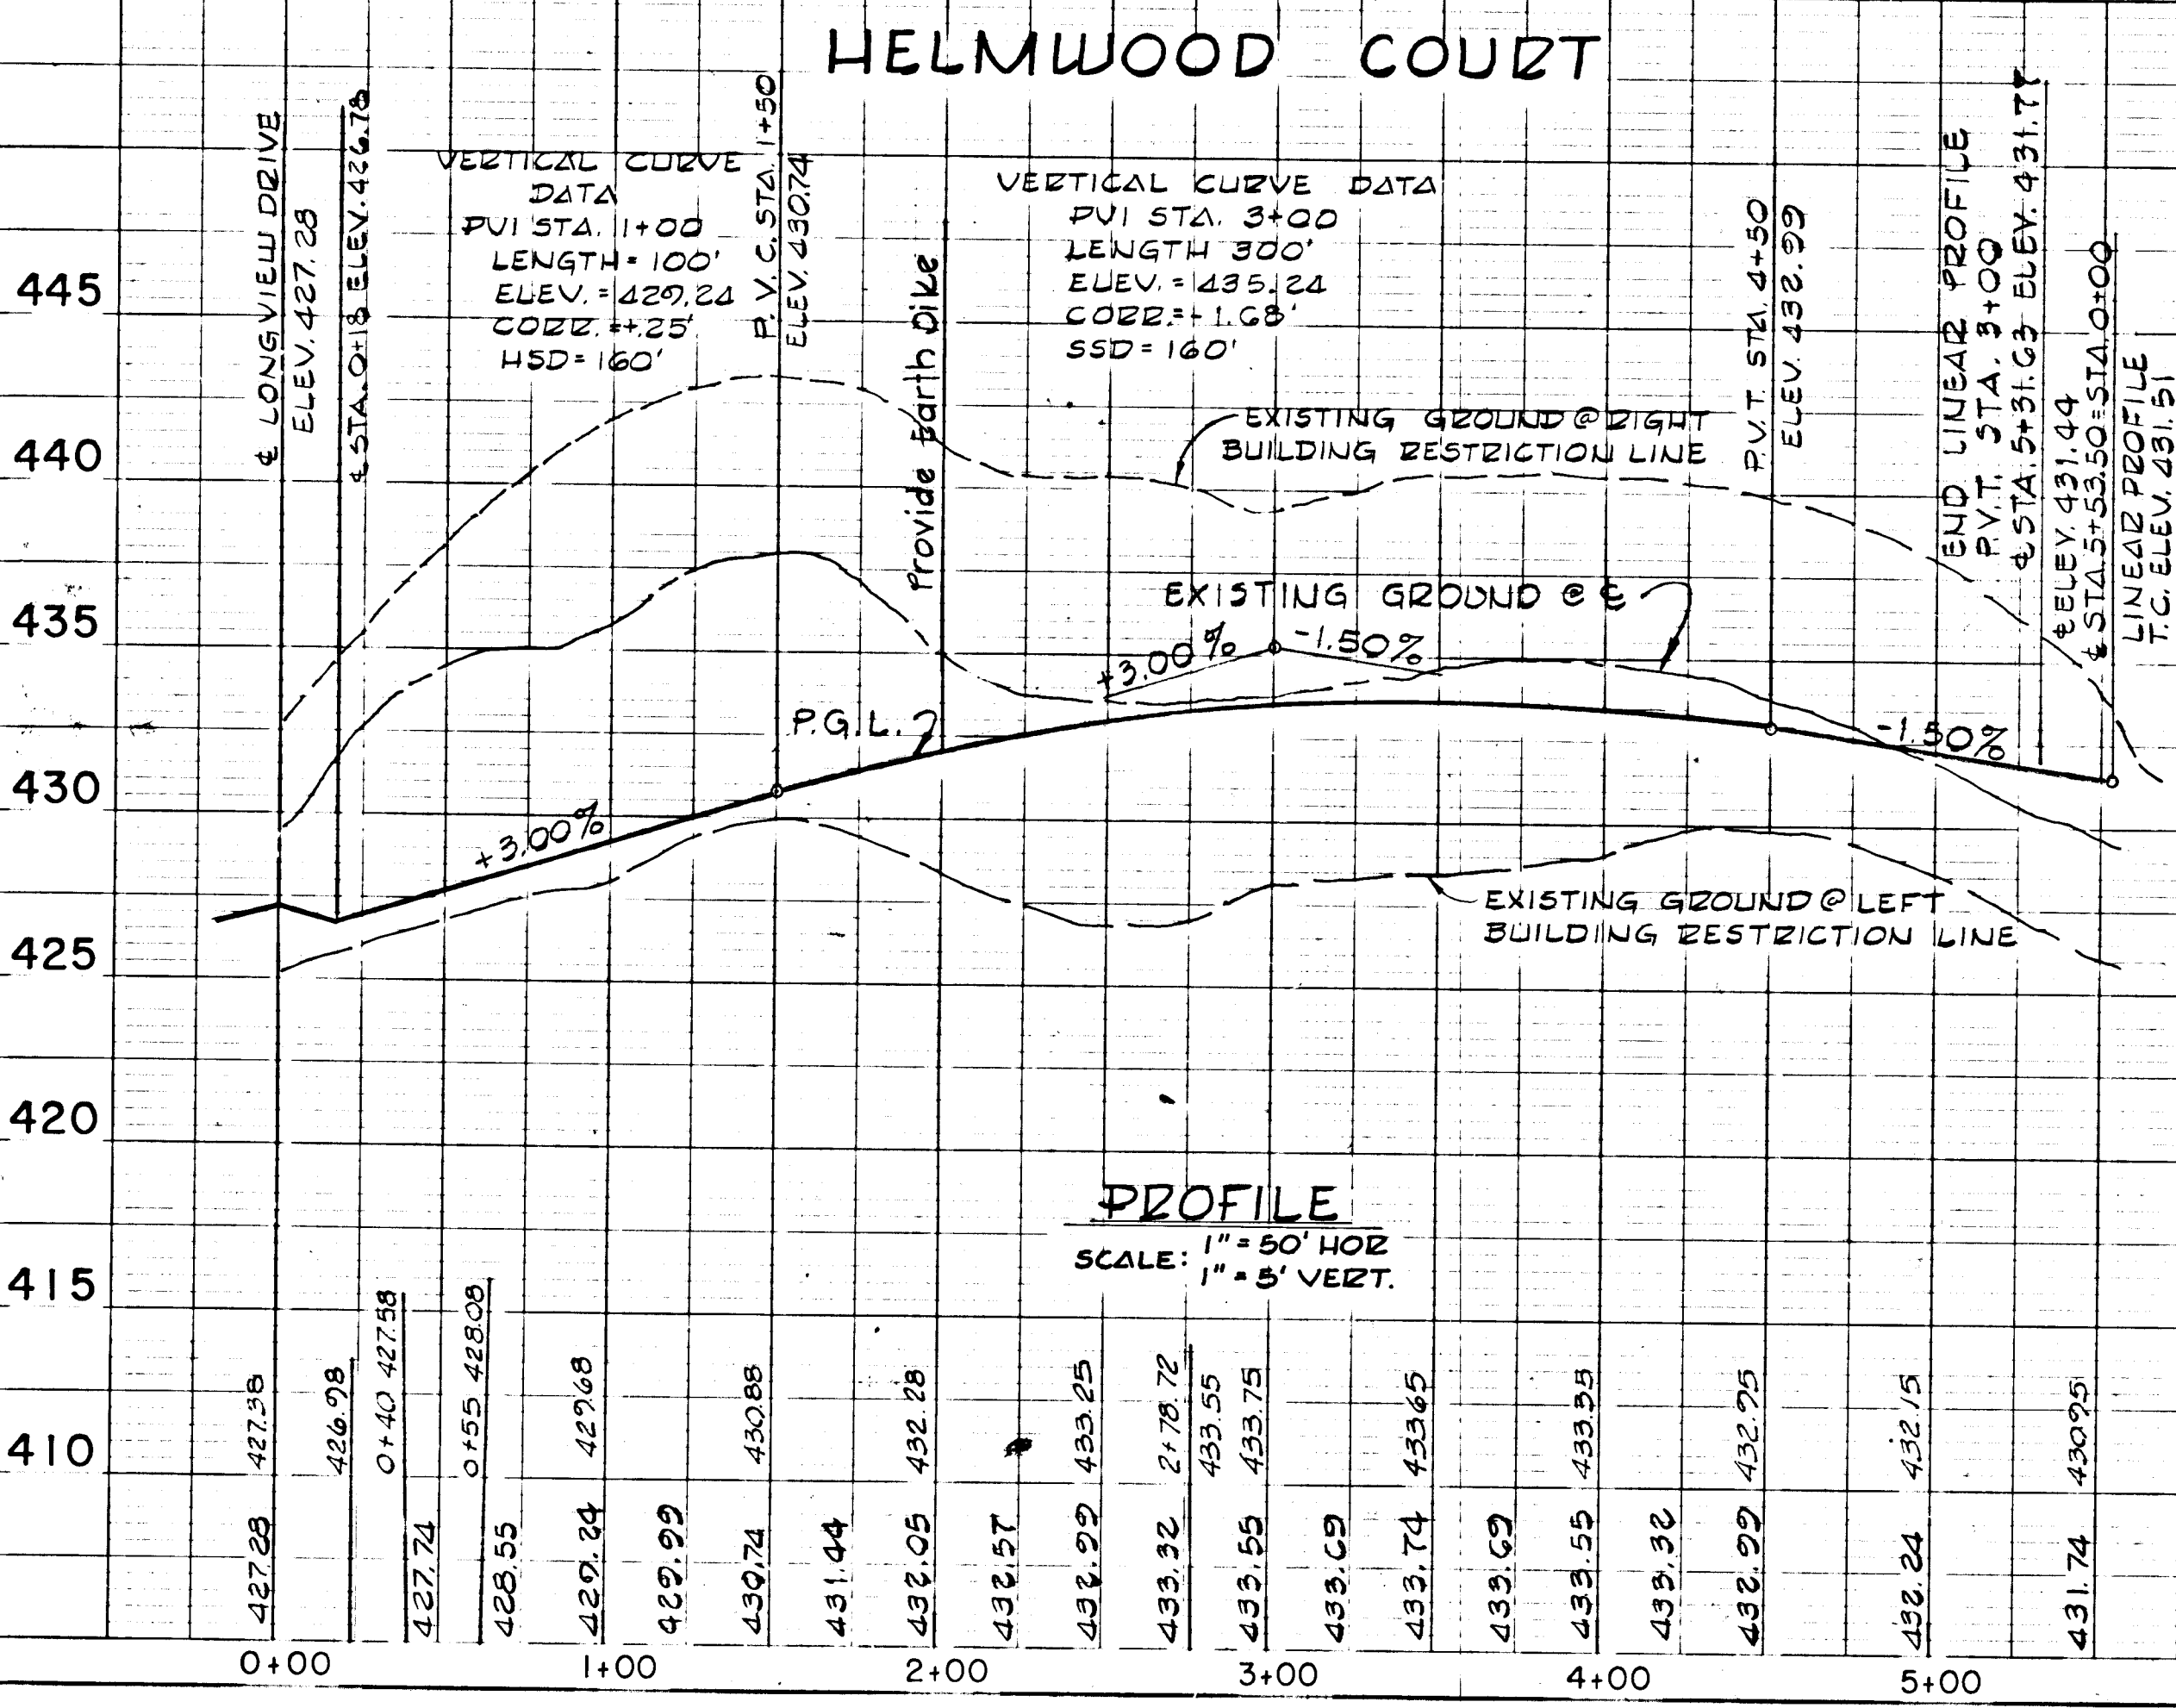 HELMWOOD COURT
℄ LONGVIEW DRIVE
ELEV. 427.28
℄ STA. 0+18 ELEV. 426.78
VERTICAL CURVE
DATA
PVI STA. 1+00
LENGTH = 100'
ELEV. = 429.24
CORR. = +.25'
HSD = 160'
P.V.C. STA. 1+50
ELEV. 430.74
Provide Earth Dike
VERTICAL CURVE DATA
PVI STA. 3+00
LENGTH 300'
ELEV. = 435.24
CORR. = - 1.68'
SSD = 160'
P.V.T. STA. 4+50
ELEV. 432.99
END LINEAR PROFILE
P.V.T. STA. 3+00
℄ STA. 5+31.63 ELEV. 431.77
℄ ELEV. 431.44
℄ STA. 5+53.50 = STA. 0+00
LINEAR PROFILE
T.C. ELEV. 431.51
EXISTING GROUND @ RIGHT
BUILDING RESTRICTION LINE
EXISTING GROUND @ ℄
+3.00%
-1.50%
P.G.L.
-1.50%
+3.00%
EXISTING GROUND @ LEFT
BUILDING RESTRICTION LINE
445
440
435
430
425
420
415
410
PROFILE
SCALE: 1" = 50' HOR
1" = 5' VERT.
427.38
426.98
0+40 427.58
0+55 428.08
429.68
430.88
432.28
433.25
2+78.72
433.55
433.75
433.65
433.35
432.95
432.15
430.95
427.28
427.74
428.55
429.24
429.99
430.74
431.44
432.05
432.57
432.99
433.32
433.55
433.69
433.74
433.69
433.55
433.32
432.99
432.24
431.74
0+00 1+00 2+00 3+00 4+00 5+00